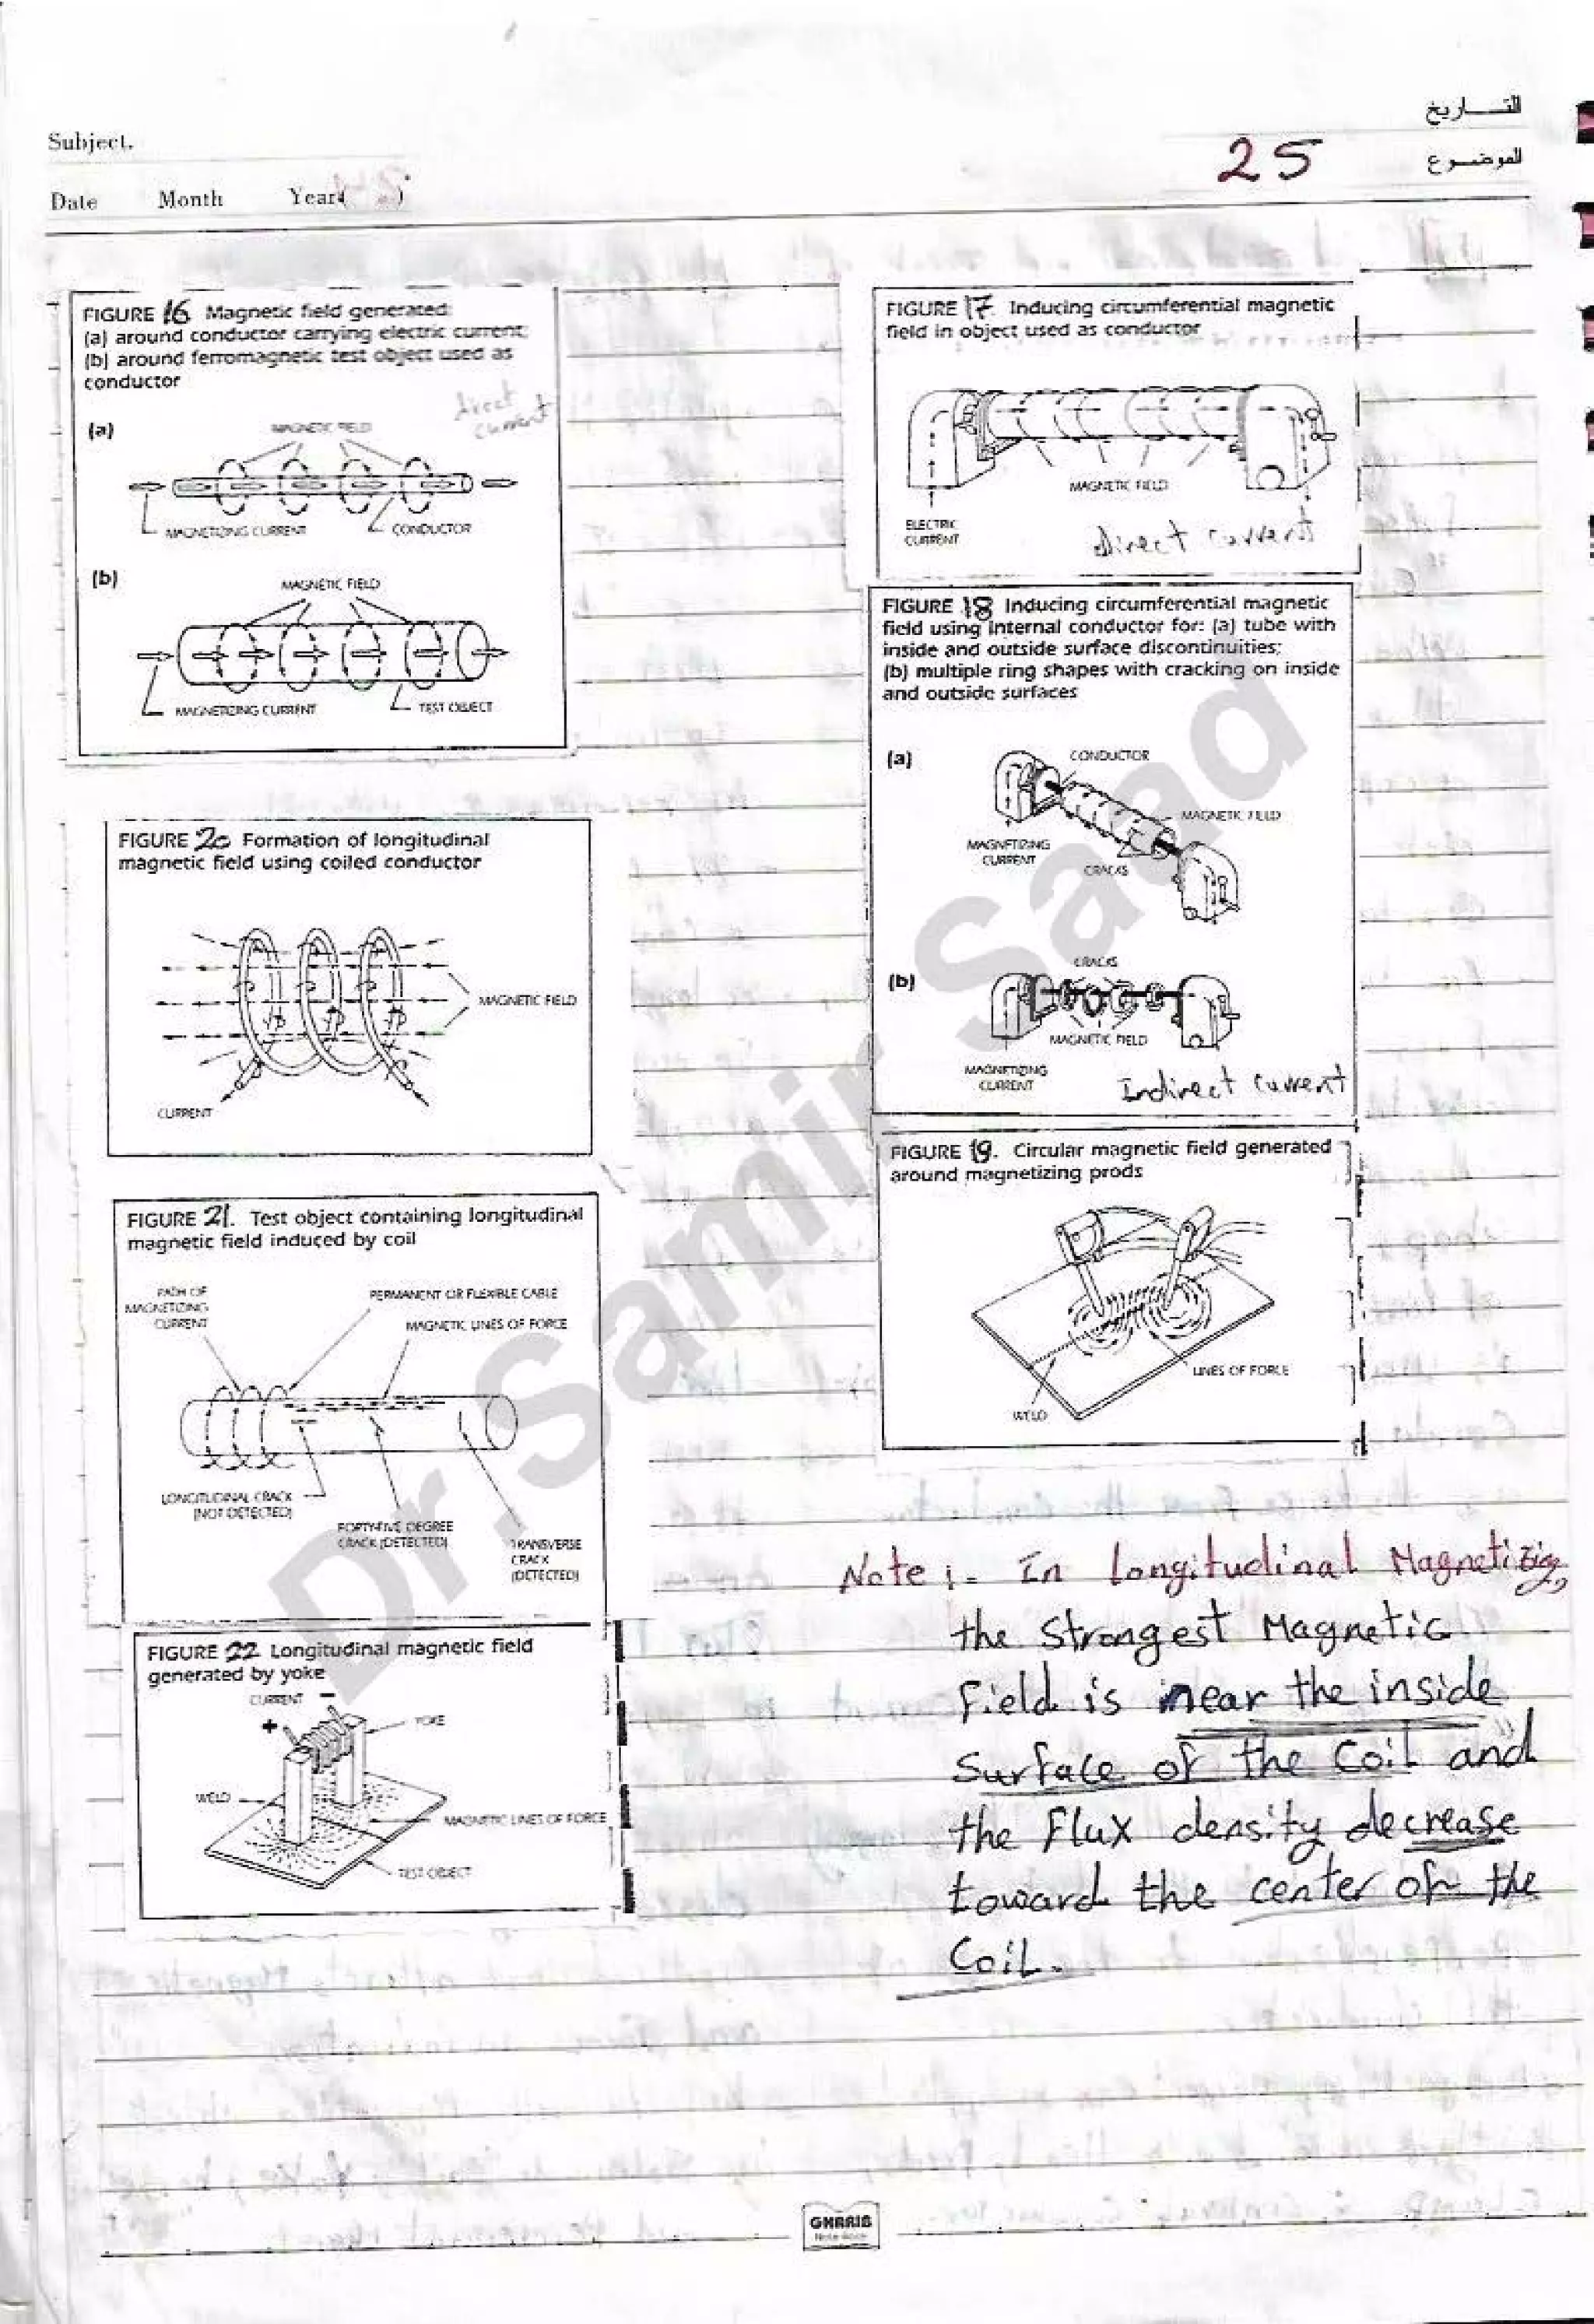 التاريخ
Subject.
25
الموضوع
Date Month Year
FIGURE 16 Magnetic field generated:
(a) around conductor carrying electric current;
(b) around ferromagnetic test object used as
conductor
direct
current
(a)
MAGNETIC FIELD
MAGNETIZING CURRENT
CONDUCTOR
(b)
MAGNETIC FIELD
MAGNETIZING CURRENT
TEST OBJECT
FIGURE 17 Inducing circumferential magnetic
field in object used as conductor
MAGNETIC FIELD
ELECTRIC
CURRENT
direct current
FIGURE 18 Inducing circumferential magnetic
field using internal conductor for: (a) tube with
inside and outside surface discontinuities;
(b) multiple ring shapes with cracking on inside
and outside surfaces
(a)
CONDUCTOR
MAGNETIC FIELD
MAGNETIZING
CURRENT
CRACKS
(b)
CRACKS
MAGNETIC FIELD
MAGNETIZING
CURRENT
Indirect current
FIGURE 19. Circular magnetic field generated
around magnetizing prods
LINES OF FORCE
WELD
FIGURE 20 Formation of longitudinal
magnetic field using coiled conductor
MAGNETIC FIELD
CURRENT
FIGURE 21. Test object containing longitudinal
magnetic field induced by coil
PATH OF
MAGNETIZING
CURRENT
PERMANENT OR FLEXIBLE CABLE
MAGNETIC LINES OF FORCE
LONGITUDINAL CRACK
(NOT DETECTED)
FORTY-FIVE DEGREE
CRACK (DETECTED)
TRANSVERSE
CRACK
(DETECTED)
FIGURE 22 Longitudinal magnetic field
generated by yoke
CURRENT −
+
YOKE
WELD
MAGNETIC LINES OF FORCE
TEST OBJECT
Note :- In Longitudinal Magnetizing,
the strongest Magnetic
Field is near the inside
Surface of the Coil and
the Flux density decrease
toward the center of the
Coil.
Dr. Samir Saad
GHARIB
Note Book